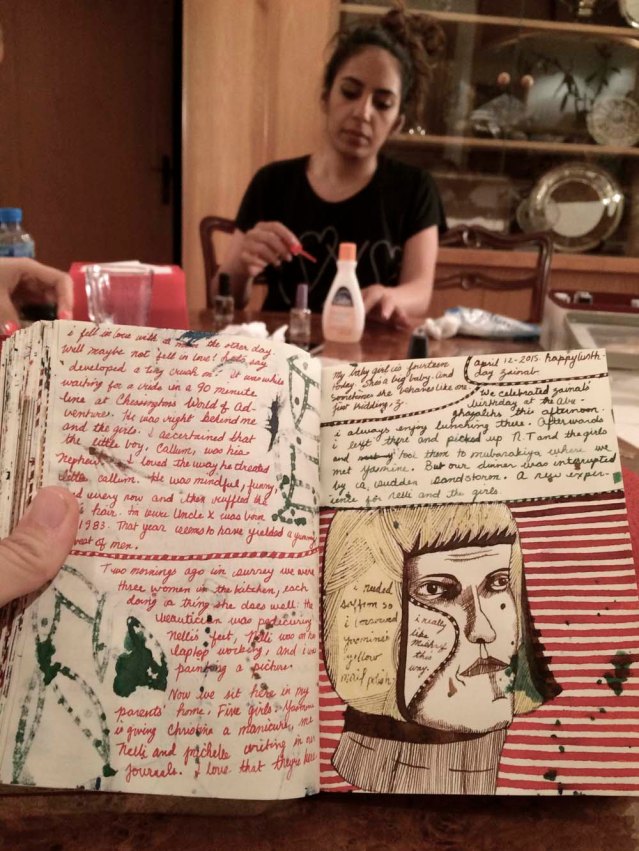 i fell in love with a man the other day.
Well maybe not fell in love! Lets say
developed a tiny crush on. it was while
waiting for a ride in a 90 minute
line at Chessington's World of Ad-
venture. He was right behind me
and the girls. I ascertained that
the little boy, Callum, was his
Nephew. I loved the way he treated
little callum. He was mindful, funny,
and every now and then ruffled the
hair. I'm sure Uncle X was born
1983. That year seems to have yielded a yummy
of men.
Two mornings ago in surrey we were
three women in the kitchen, each
doing a thing she does well. the
beautician was pedicuring
Nelli's feet, Nelli was on her
laptop working, and i was
painting a picture.
Now we sit here in my
parents' home. Five girls. Yasmine
is giving Christina a manicure, me
Nelli and michelle writing in our
journals. I love that they're here
My baby girl is fourteen
today. She's a big baby. And
Sometimes she behaves like one.
Just kidding. Z
April 12-2015. happy birth-
day zainab.
We celebrated zainab's
birthday at the abu-
ghazalehs this afternoon.
i always enjoy lunching there. Afterwards
i left there and picked up N.T and the girls
and took them to mubarakiya where we
met Yasmine. But our dinner was interrupted
by a sudden sandstorm. A new exper-
ience for Nelli and the girls.
i needed
saffron so
i borrowed
yasmine's
yellow
nail polish.
i really
like
this
way.